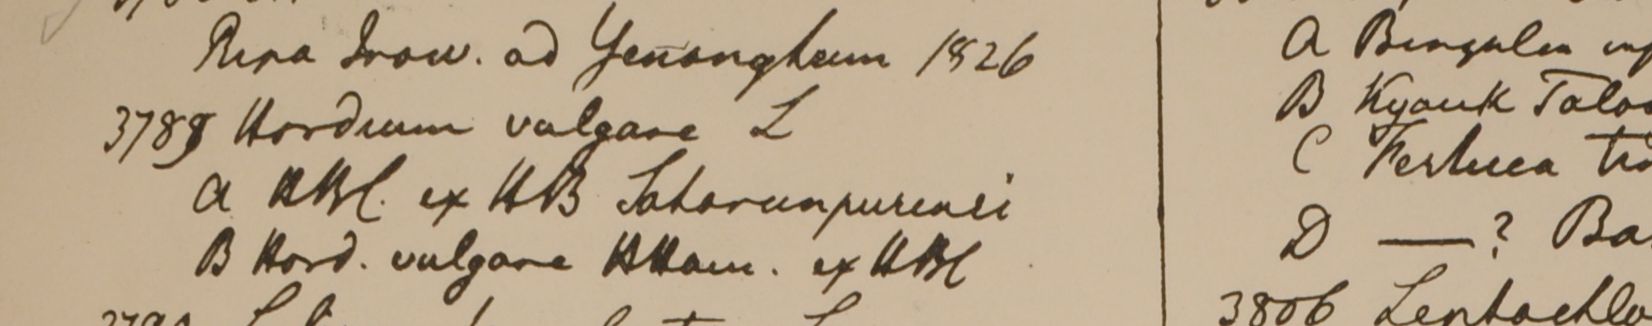 Ripa Iraw. ad Yenangheum 1826
3789 Hordeum vulgare L
A HBC. ex HB Saharunpurensi
B Hord. vulgare HHam. ex HBC
A Bengalea
B Kyouk Talo
C Festuca
D —? Ba
3806 Leptochlo